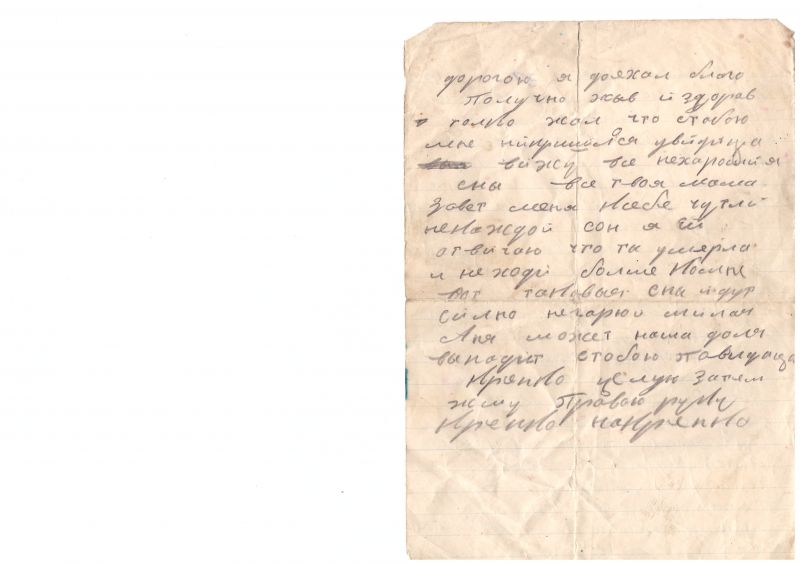 дорогою я доехал благо
получно жыв и здоров
толко жал что стобою
мне нипришлося увидица
вижу все нехарошыя
сны все твоя мама
завет меня ксебе чутли
некаждой сон я ей
отвичаю что ты умярла
и не ходи болше комне
вот таковые сны идут
силно негарюй милая
Аня может наша доля
выпадит стобою повидаца
крепко целую затем
жму правою руку
крепко накрепко